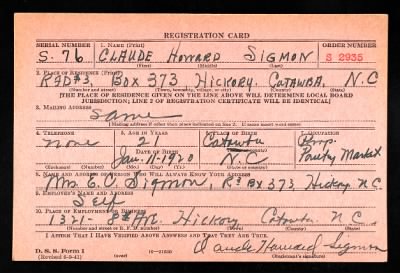 REGISTRATION CARD
SERIAL NUMBER 1. NAME (Print) ORDER NUMBER
S. 76 CLAUDE HOWARD SIGMON S 2935
(First) (Middle) (Last)
2. PLACE OF RESIDENCE (Print)
RFD #3, Box 373 Hickory, Catawba, N.C
(Number and street) (Town, township, village, or city) (County) (State)
[THE PLACE OF RESIDENCE GIVEN ON THE LINE ABOVE WILL DETERMINE LOCAL BOARD
JURISDICTION; LINE 2 OF REGISTRATION CERTIFICATE WILL BE IDENTICAL]
3. MAILING ADDRESS
Same
[Mailing address if other than place indicated on line 2. If same, insert word same]
4. TELEPHONE 5. AGE IN YEARS 6. PLACE OF BIRTH 7. OCCUPATION
none 21 Catawba Prop.
DATE OF BIRTH (Town or county) Poultry Market
Jan. 11-1920 N.C.
(Exchange) (Number) (Mo.) (Day) (Yr.) (State or country)
8. NAME AND ADDRESS OF PERSON WHO WILL ALWAYS KNOW YOUR ADDRESS
Mrs. E. O. Sigmon, R3 Bx 373, Hickory N.C.
9. EMPLOYER'S NAME AND ADDRESS
Self
10. PLACE OF EMPLOYMENT OR BUSINESS
1321- 8th Ave. Hickory Catawba N.C.
(Number and street or R. F. D. number) (Town) (County) (State)
I AFFIRM THAT I HAVE VERIFIED ABOVE ANSWERS AND THAT THEY ARE TRUE.
D. S. S. Form 1 Claude Howard Sigmon
(Revised 6-9-41) (Registrant's signature)